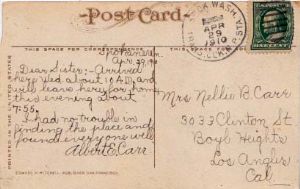 Post Card
THIS SPACE FOR CORRESPONDENCE
THIS SPACE FOR
APR
29
1910
Apr. 29, 1910
Dear Sister:- Arrived
here, at about 10 A.M. and
will leave here for home
this evening about
7:55.
I had no trouble in
finding the place and
found everyone well
Albert E. Carr
Mrs Nellie B. Carr
3033 Clinton St
Boyl Heights
Los Angeles
Cal.
PRINTED IN THE UNITED STATES
EDWARD H. MITCHELL, PUBLISHER, SAN FRANCISCO